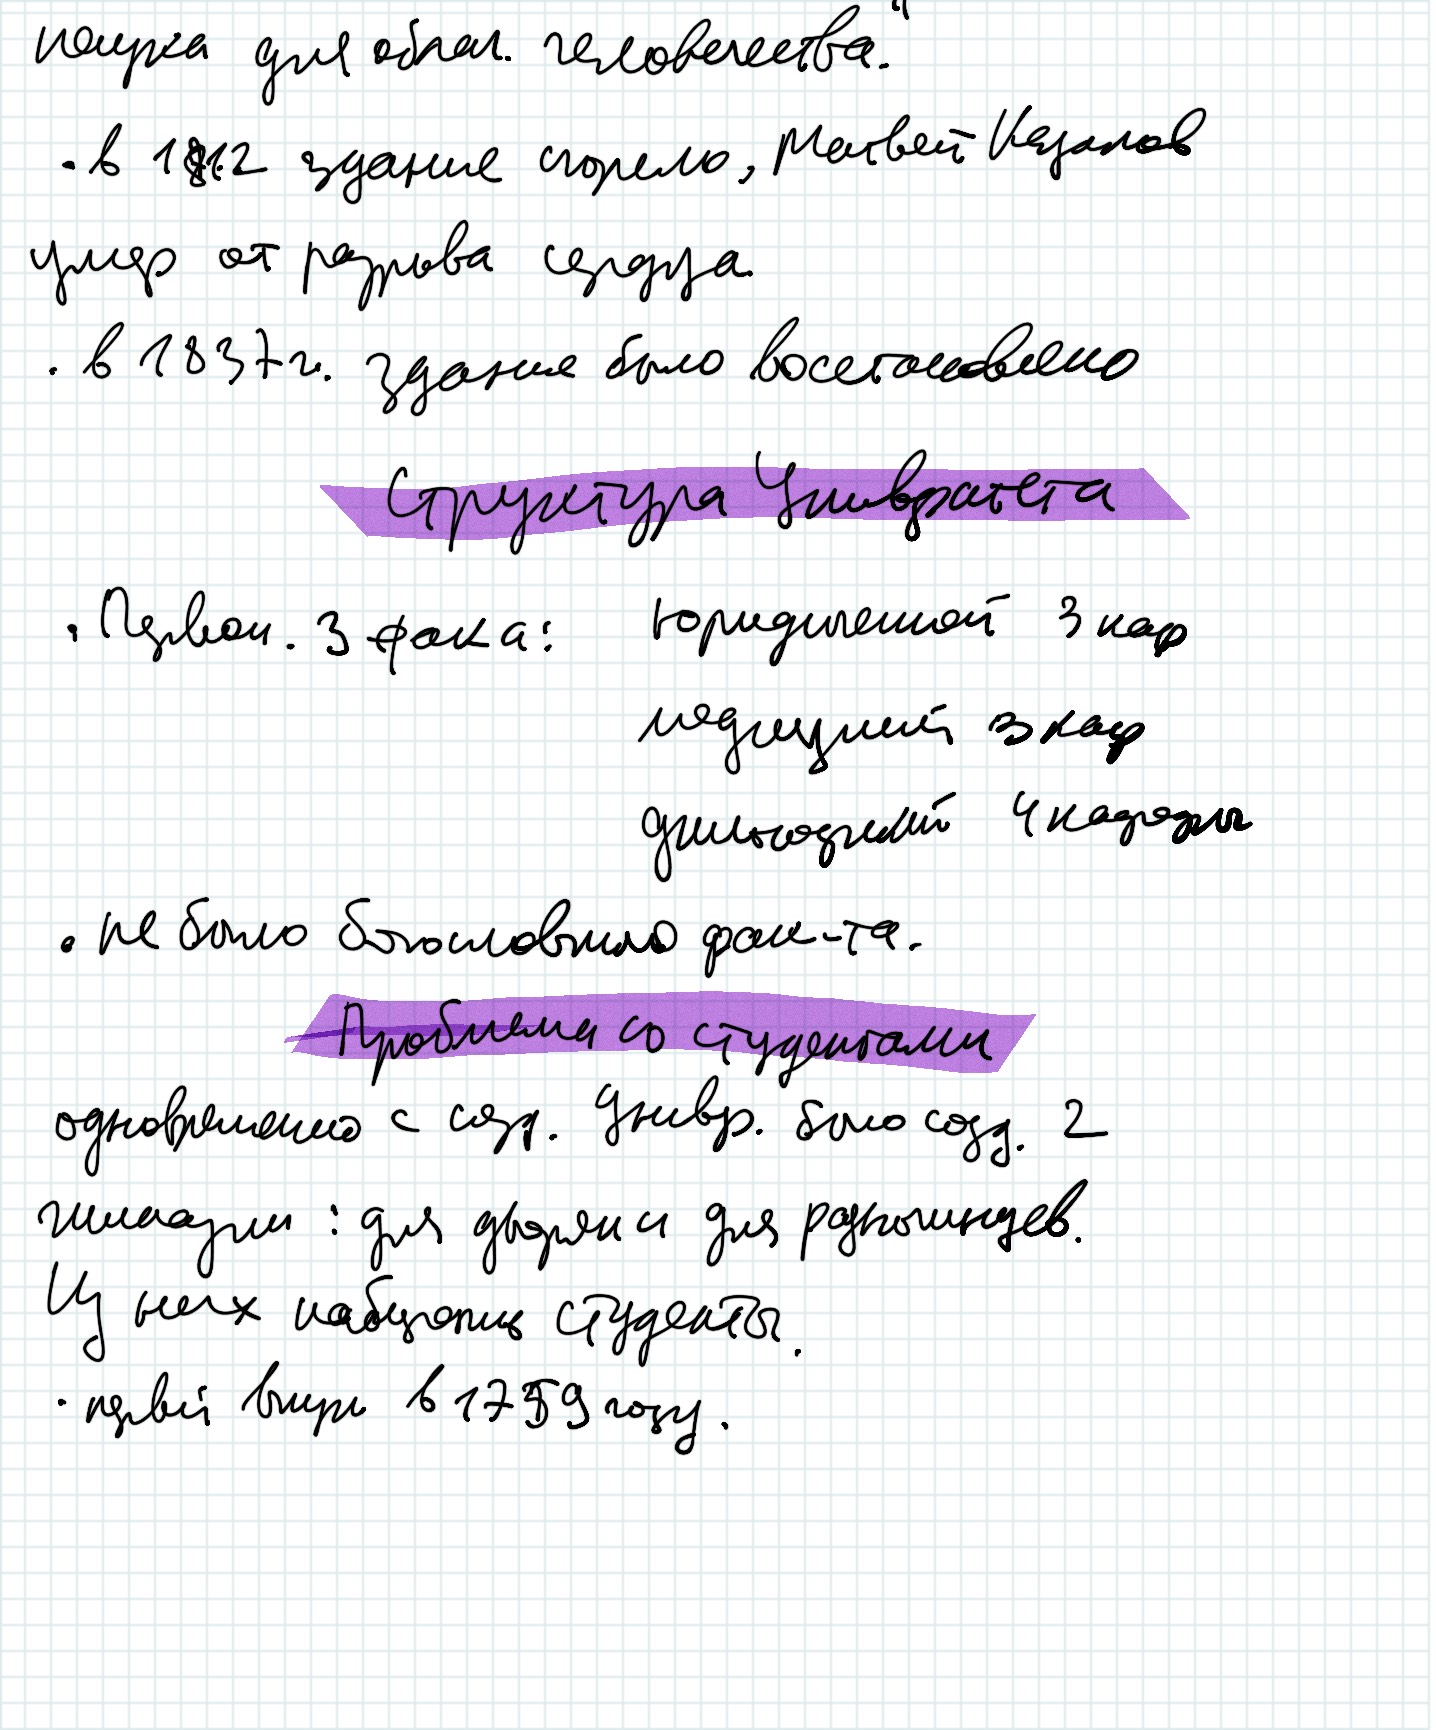 наука для облаг. человечества."
· в 1812 здание сгорело, Матвей Казаков
умер от разрыва сердца.
· в 1837 г. здание было восстановлено
Структура Универатета
· Первон. 3 фака: юридический 3 каф
медицинский 3 каф
4 кафедры
· не было богословного фак-та.
Проблема со студентами
одновременно с созд. Унивр. было созд. 2
гимназии: для дворян и для разночинцев.
Из них набирались студенты.
· первый выпуск в 1759 году.